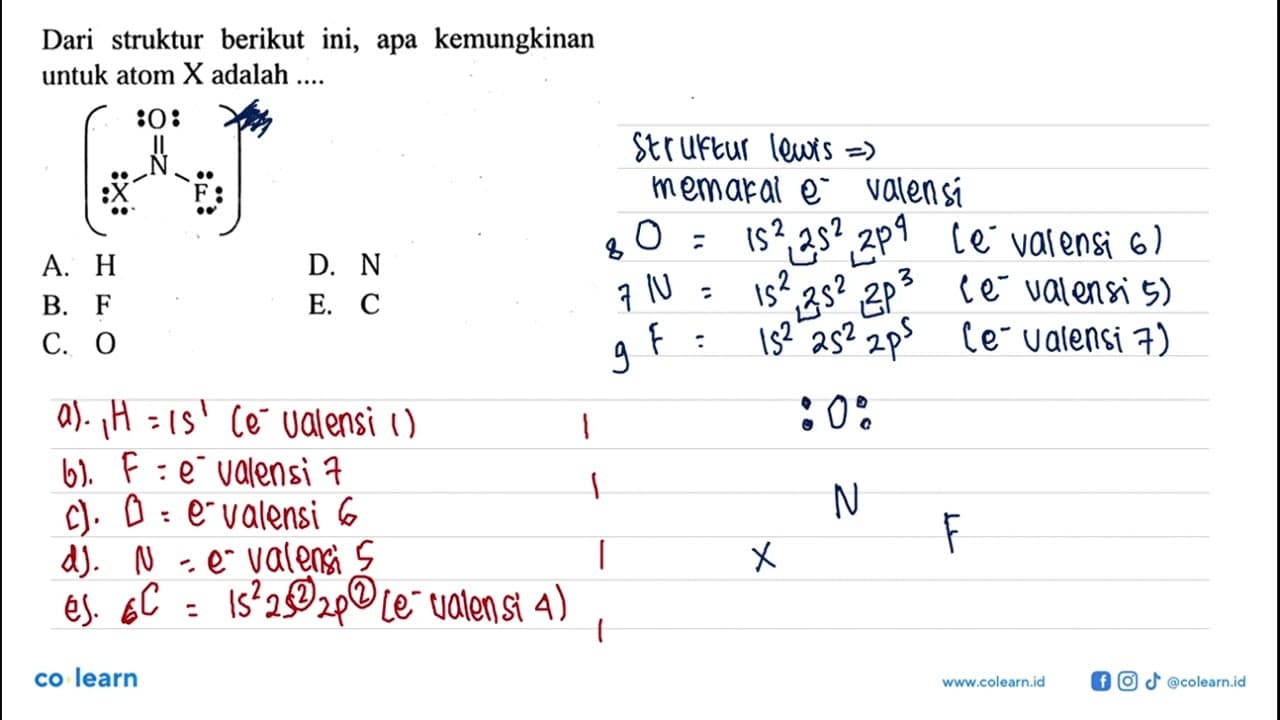 Dari struktur berikut ini, apa kemungkinan
untuk atom X adalah ....
:O:
||
N
:X
F:
A. H
D. N
B. F
E. C
C. O
Struktur lewis =>
memakai e⁻ valensi
₈O = 1s² 2s² 2p⁴ (e⁻ valensi 6)
₇N = 1s² 2s² 2p³ (e⁻ valensi 5)
₉F = 1s² 2s² 2p⁵ (e⁻ valensi 7)
a). ₁H = 1s¹ (e⁻ valensi 1)
b). F = e⁻ valensi 7
c). O = e⁻ valensi 6
d). N = e⁻ valensi 5
e). ₆C = 1s² 2s² 2p² (e⁻ valensi 4)
:O:
N
F
X
co learn
www.colearn.id
@colearn.id